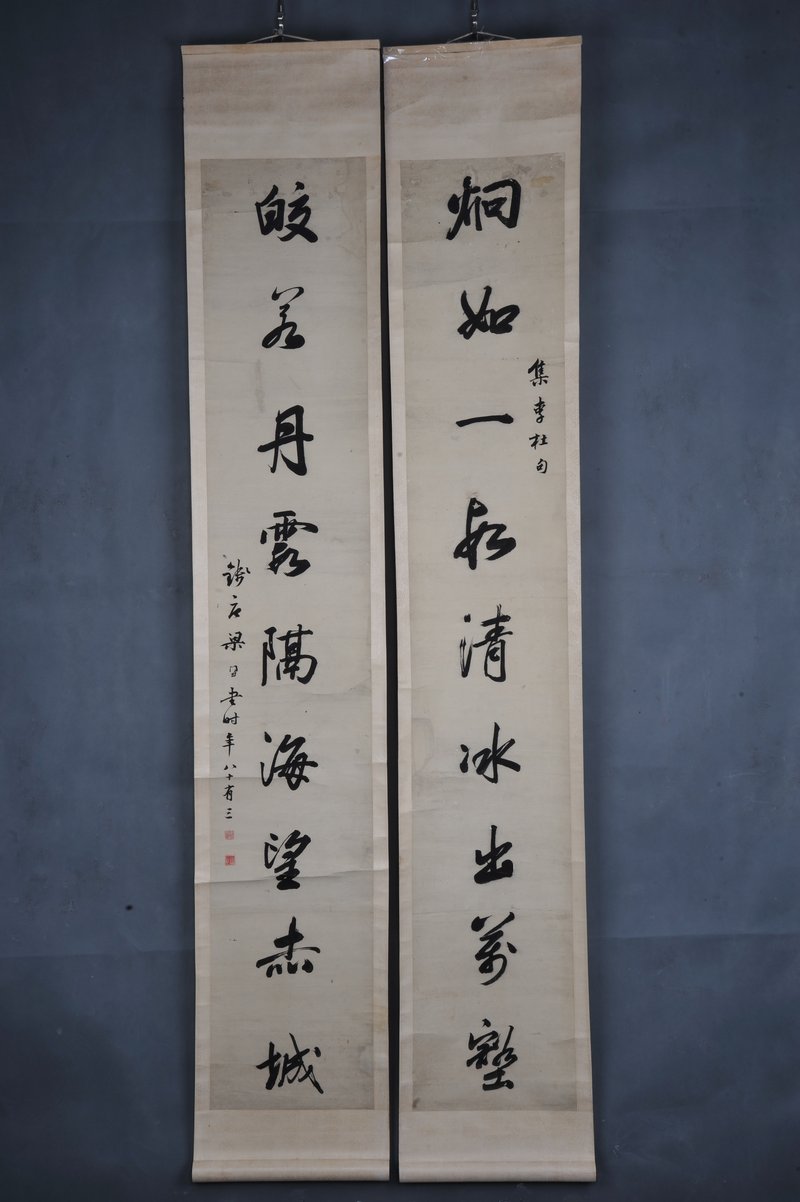 炯如一段清冰出萬壑
集李杜句
皎若丹霞隔海望赤城
錢唐梁同書時年八十有三